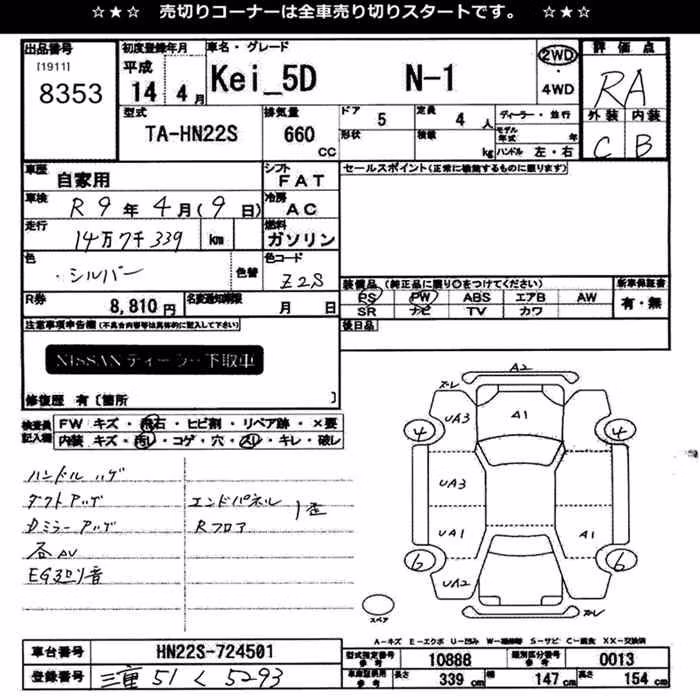 ☆★☆ 売切りコーナーは全車売り切りスタートです。 ☆★☆
出品番号 初度登録年月 車名・グレード 評価点
[1911] 平成 2WD
8353 14年4月 Kei_5D N-1 4WD RA
型式 排気量 ドア 5 定員 4人 ディーラー・並行 外装 内装
TA-HN22S 660 cc 形状 積載 kg モデル年式 年 C B
ハンドル 左・右
車歴 自家用 シフト FAT セールスポイント(正常に機能するものに限ります)
車検 R9年4月(9日) 冷房 AC
走行 14万7千339 km 燃料 ガソリン
色 ・シルバー 色替 色コード Z2S
装備品(純正品に限り○をつけてください) 新車保証書
R券 8,810円 名変通知期限 月 日 PS PW ABS エアB AW 有・無
SR ナビ TV カワ
注意事項申告欄(不具合内容等は具体的に記入して下さい) 後日品
NISSANディーラー下取車
修復歴 有〔箇所 〕
検査員記入欄 FW キズ・飛石・ヒビ割・リペア跡・×要
内装 キズ・汚れ・コゲ・穴・スリ・キレ・破レ
ハンドルハゲ
ダクトアッゲ エンドパネル 1歪
Dミラーアッゲ Rフロア
各AU
EG廻り音
A2
ズレ
UA3 A1
4 4
UA3
UA1 A1
6 6
UA2
ズレ
スペア
A-キズ E-エクボ U-凹み W-補修等 S-サビ C-腐食 XX-交換済
車台番号 HN22S-724501 型式指定番号 参考 10888 類別区分番号 参考 0013
登録番号 三重 51 く 5293 車車型使用 参考 長さ 339 cm 幅 147 cm 高さ 154 cm